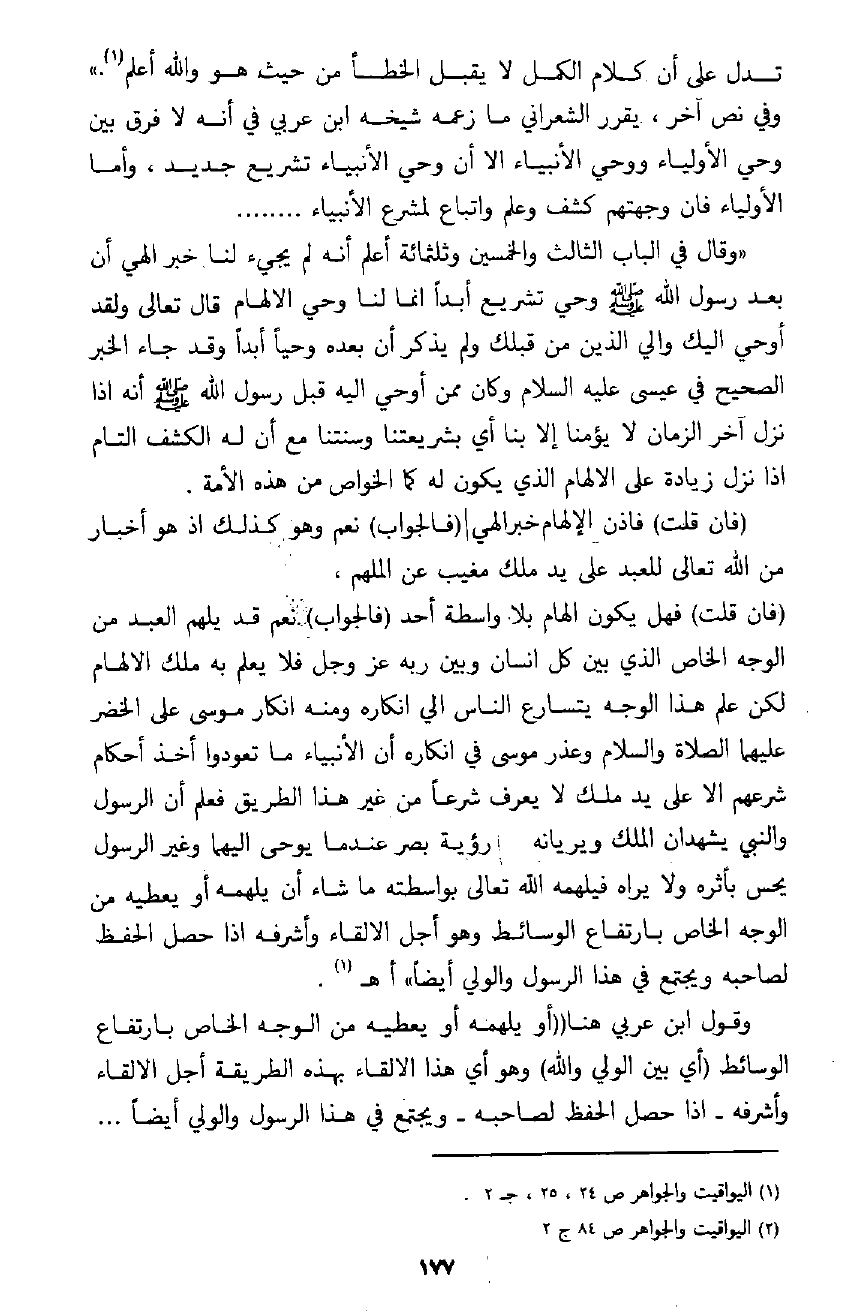 تدل على أن كلام الكمل لا يقبل الخطأ من حيث هو والله أعلم(١).»
وفي نص آخر ، يقرر الشعراني ما زعمه شيخه ابن عربي في أنه لا فرق بين
وحي الأولياء ووحي الأنبياء الا أن وحي الأنبياء تشريع جديد ، وأما
الأولياء فان وجهتهم كشف وعلم واتباع لمشرع الأنبياء ........
«وقال في الباب الثالث والخمسين وثلثمائة أعلم أنه لم يجيء لنا خبر الهي أن
بعد رسول الله ﷺ وحي تشريع أبداً انما لنا وحي الالهام قال تعالى ولقد
أوحي اليك والي الذين من قبلك ولم يذكر أن بعده وحياً أبداً وقد جاء الخبر
الصحيح في عيسى عليه السلام وكان ممن أوحي اليه قبل رسول الله ﷺ أنه اذا
نزل آخر الزمان لا يؤمنا إلا بنا أي بشريعتنا وسنتنا مع أن له الكشف التام
اذا نزل زيادة على الالهام الذي يكون له كما الخواص من هذه الأمة .
(فان قلت) فاذن الإلهام خبر الهي (فالجواب) نعم وهو كذلك اذ هو أخبار
من الله تعالى للعبد على يد ملك مغيب عن الملهم ،
(فان قلت) فهل يكون الهام بلا واسطة أحد (فالجواب) نعم قد يلهم العبد من
الوجه الخاص الذي بين كل انسان وبين ربه عز وجل فلا يعلم به ملك الالهام
لكن علم هذا الوجه يتسارع الناس الي انكاره ومنه انكار موسى على الخضر
عليهما الصلاة والسلام وعذر موسى في انكاره أن الأنبياء ما تعودوا أخذ أحكام
شرعهم الا على يد ملك لا يعرف شرعاً من غير هذا الطريق فعلم أن الرسول
والنبي يشهدان الملك ويريانه رؤية بصر عندما يوحى اليهما وغير الرسول
يحس بأثره ولا يراه فيلهمه الله تعالى بواسطته ما شاء أن يلهمه أو يعطيه من
الوجه الخاص بارتفاع الوسائط وهو أجل الالقاء وأشرفه اذا حصل الحفظ
لصاحبه ويجتمع في هذا الرسول والولي أيضاً» أ هـ (١) .
وقول ابن عربي هنا((أو يلهمه أو يعطيه من الوجه الخاص بارتفاع
الوسائط (أي بين الولي والله) وهو أي هذا الالقاء بهذه الطريقة أجل الالقاء
وأشرفه ـ اذا حصل الحفظ لصاحبه ـ ويجتمع في هذا الرسول والولي أيضاً ...
(١) اليواقيت والجواهر ص ٢٤ ، ٢٥ ، جـ ٢ .
(٢) اليواقيت والجواهر ص ٨٤ ج ٢
١٧٧